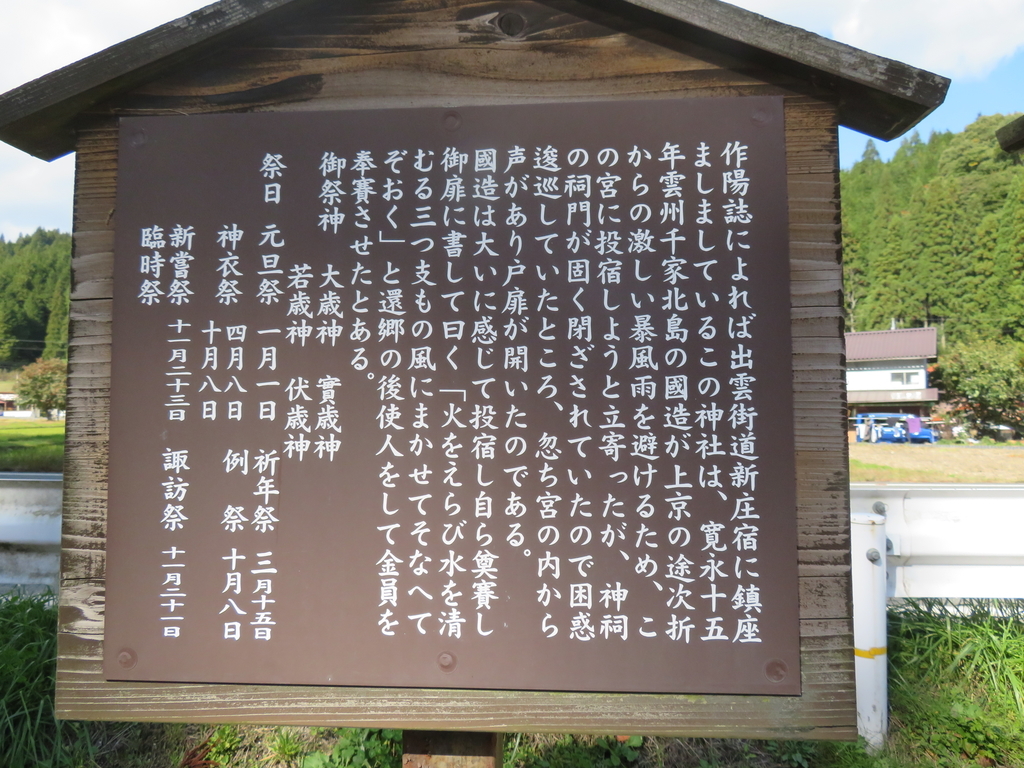 作陽誌によれば出雲街道新庄宿に鎮座
ましましているこの神社は、寛永十五
年雲州千家北島の國造が上京の途次折
からの激しい暴風雨を避けるため、こ
の宮に投宿しようと立寄ったが、神祠
の祠門が固く閉ざされていたので困惑
逡巡していたところ、忽ち宮の内から
声があり戸扉が開いたのである。
國造は大いに感じて投宿し自ら奠賽し
御扉に書して曰く「火をえらび水を清
むる三つ支もの風にまかせてそなへて
ぞおく」と還郷の後使人をして金員を
奉賽させたとある。
御祭神 大歳神 實歳神
若歳神 伏歳神
祭日 元旦祭 一月一日 祈年祭 三月十五日
神衣祭 四月八日 例祭 十月八日
十月八日
新嘗祭 十一月二十三日 諏訪祭 十一月二十一日
臨時祭